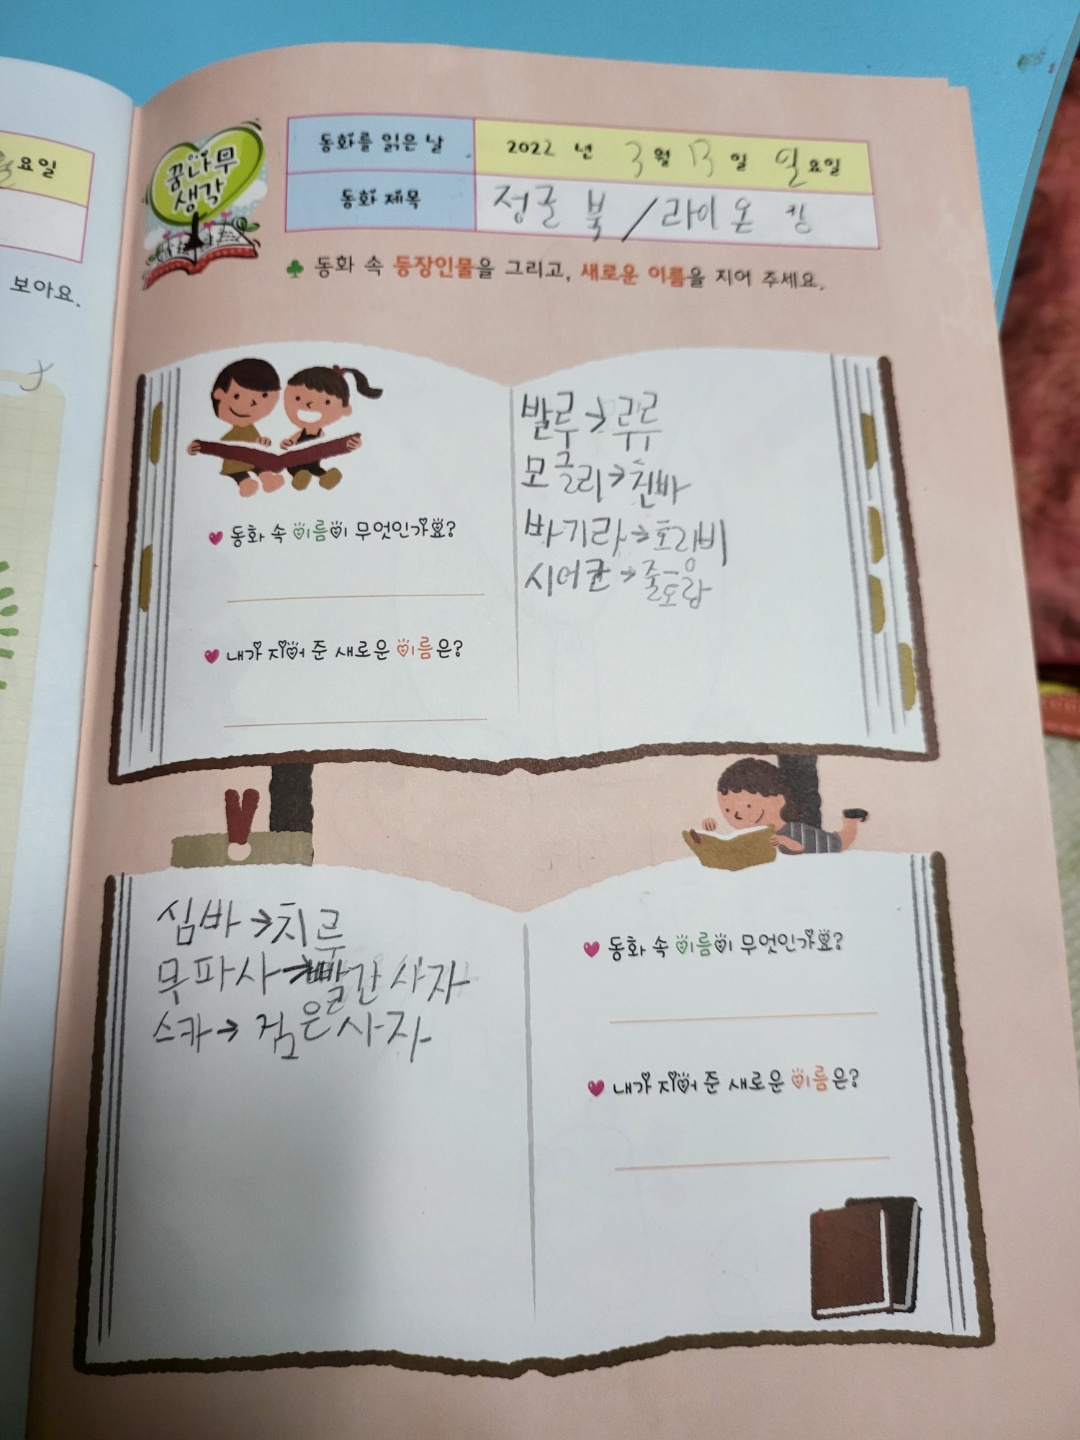 요일
보아요.
꿈나무
생각
동화를 읽은 날
2022 년 3월 13일 일요일
동화 제목
정글 북 / 라이온 킹
♣ 동화 속 등장인물을 그리고, 새로운 이름을 지어 주세요.
발루→루루
모글리→친바
바기라→호랑비
시어칸→줄호랑
동화 속 이름이 무엇인가요?
내가 지어 준 새로운 이름은?
심바→치루
무파사→빨간 사자
스카→검은사자
동화 속 이름이 무엇인가요?
내가 지어 준 새로운 이름은?